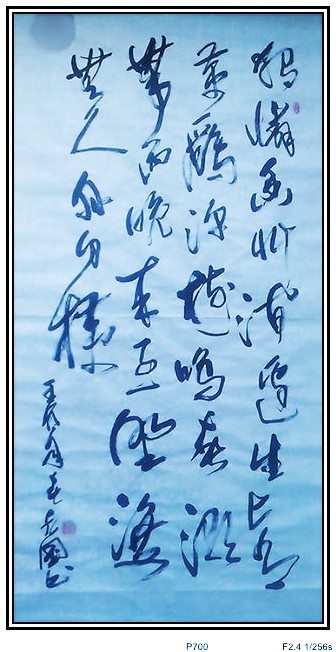 獨憐幽草澗邊生上有
黄鸝深樹鳴春潮
帶雨晚来急野渡
無人舟自橫
壬辰 國书
P700 F2.4 1/256s